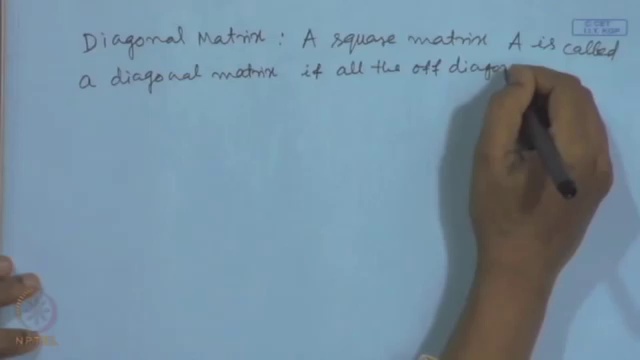 © CET
I.I.T. KGP
Diagonal Matrix : A square matrix A is called
a diagonal matrix if all the off diago
NPTEL